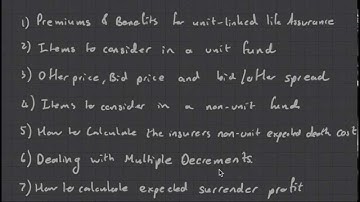 1) Premiums & Benefits for unit-linked life Assurance
2) Items to consider in a unit fund
3) Offer price, Bid price and bid/offer spread
4) Items to consider in a non-unit fund
5) How to Calculate the insurers non-unit expected death cost
6) Dealing with Multiple Decrements
7) How to calculate expected surrender profit